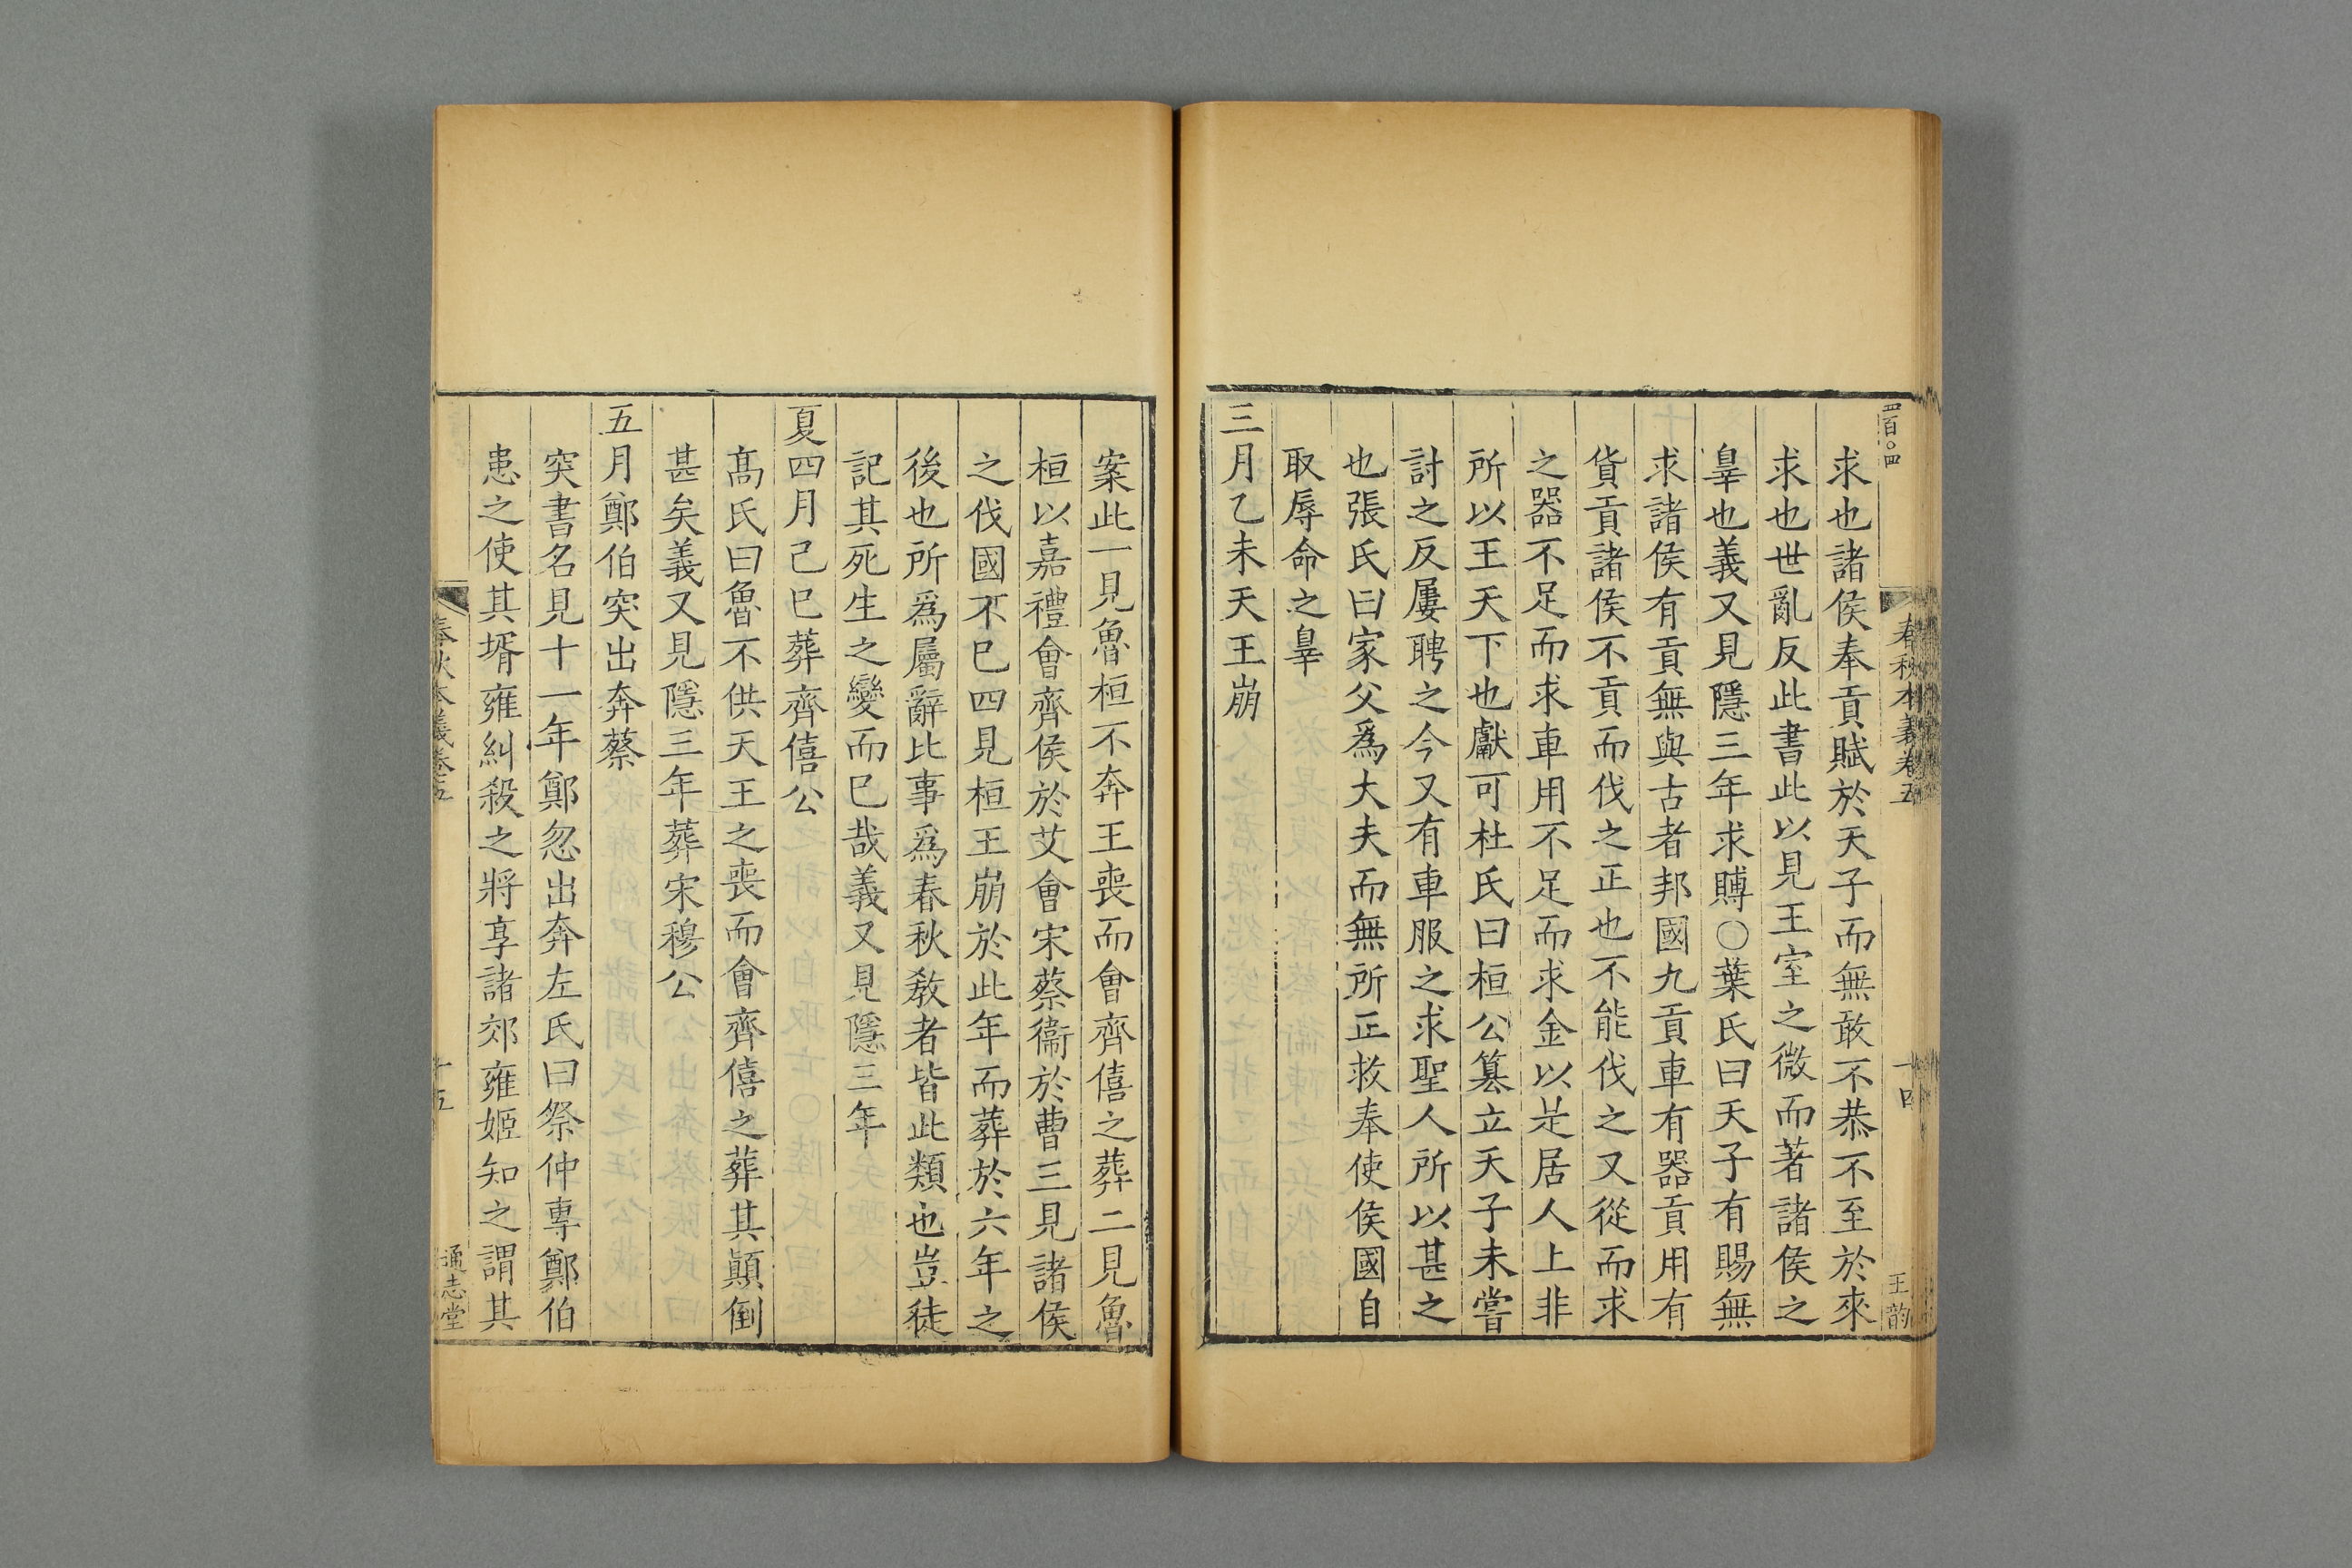 四百〇四
春秋本義卷五
十四
王韵
求也諸侯奉貢賦於天子而無敢不恭不至於來
求也世亂反此書此以見王室之微而著諸侯之
辠也義又見隱三年求賻○葉氏曰天子有賜無
求諸侯有貢無與古者邦國九貢車有器貢用有
貨貢諸侯不貢而伐之正也不能伐之又從而求
之器不足而求車用不足而求金以是居人上非
所以王天下也獻可杜氏曰桓公篡立天子未嘗
討之反屢聘之今又有車服之求聖人所以甚之
也張氏曰家父爲大夫而無所正救奉使侯國自
取辱命之辠
三月乙未天王崩
案此一見魯桓不奔王喪而會齊僖之葬二見魯
桓以嘉禮會齊侯於艾會宋蔡衞於曹三見諸侯
之伐國不已四見桓王崩於此年而葬於六年之
後也所爲屬辭比事爲春秋敎者皆此類也豈徒
記其死生之變而已哉義又見隱三年
夏四月己巳葬齊僖公
髙氏曰魯不供天王之喪而會齊僖之葬其顚倒
甚矣義又見隱三年葬宋穆公
五月鄭伯突出奔蔡
突書名見十一年鄭忽出奔左氏曰祭仲專鄭伯
患之使其壻雍糾殺之將享諸郊雍姬知之謂其
春秋本義卷五
十五
通志堂